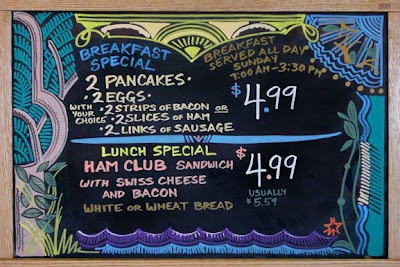 BREAKFAST
SPECIAL
BREAKFAST
SERVED ALL DAY
SUNDAY
7:00 AM - 3:30 PM
2 PANCAKES •
• 2 EGGS •
WITH YOUR CHOICE
• 2 STRIPS OF BACON OR
• 2 SLICES OF HAM
• 2 LINKS OF SAUSAGE
$4.99
LUNCH SPECIAL
HAM CLUB SANDWICH
WITH SWISS CHEESE
AND BACON
WHITE OR WHEAT BREAD
$4.99
USUALLY
$5.59